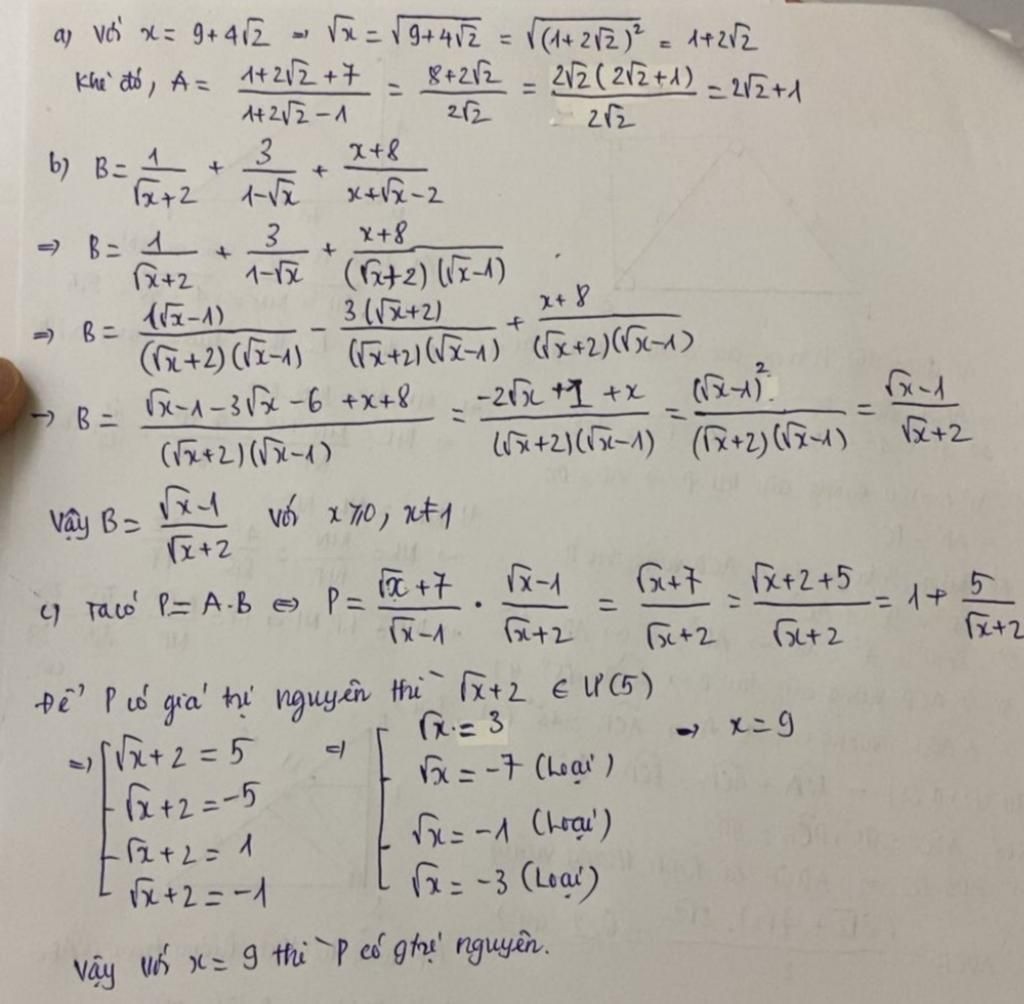 a) Với x = 9+4√2 ⇒ √x = √(9+4√2) = √((1+2√2)²) = 1+2√2
Khi đó, A = (1+2√2+7)/(1+2√2-1) = (8+2√2)/(2√2) = (2√2(2√2+1))/(2√2) = 2√2+1
b) B = 1/(√x+2) + 3/(1-√x) + (x+8)/(x+√x-2)
⇒ B = 1/(√x+2) + 3/(1-√x) + (x+8)/((√x+2)(√x-1))
⇒ B = (1(√x-1))/((√x+2)(√x-1)) - (3(√x+2))/((√x+2)(√x-1)) + (x+8)/((√x+2)(√x-1))
→ B = (√x-1-3√x-6+x+8)/((√x+2)(√x-1)) = (-2√x+1+x)/((√x+2)(√x-1)) = (√x-1)²/((√x+2)(√x-1)) = (√x-1)/(√x+2)
Vậy B = (√x-1)/(√x+2) với x ≥ 0, x ≠ 1
c) Ta có P = A.B ⇔ P = (√x+7)/(√x-1) · (√x-1)/(√x+2) = (√x+7)/(√x+2) = (√x+2+5)/(√x+2) = 1 + 5/(√x+2)
Để P có giá trị nguyên thì √x+2 ∈ Ư(5)
⇒ [ √x+2 = 5 ⇒ [ √x = 3 → x = 9
√x+2 = -5 √x = -7 (Loại)
√x+2 = 1 √x = -1 (Loại)
√x+2 = -1 √x = -3 (Loại)
Vậy với x = 9 thì P có gtrị nguyên.